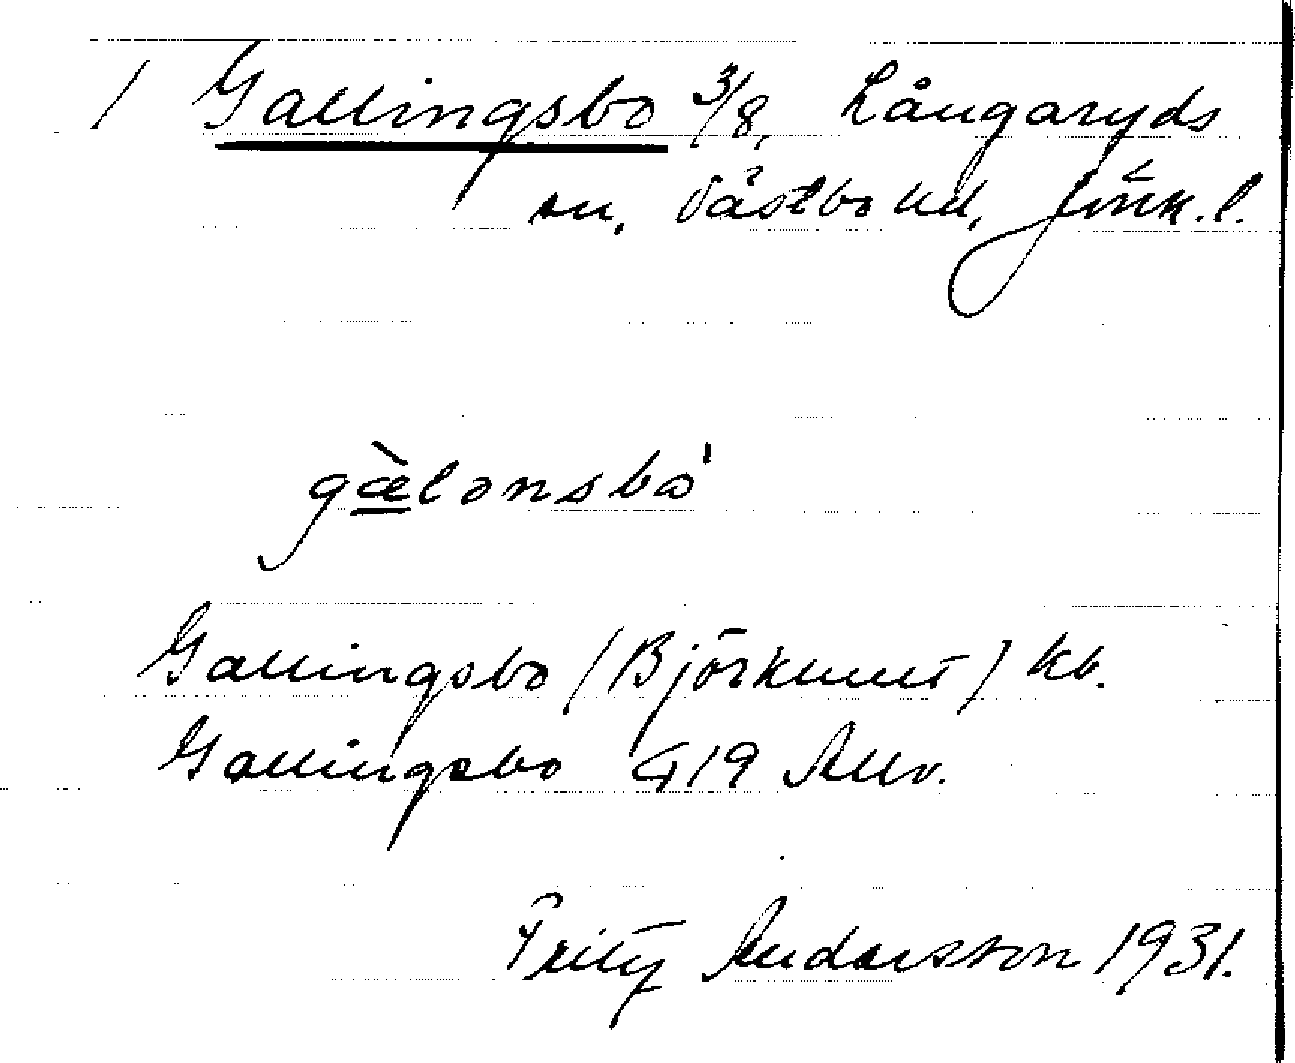 1 Gallingsbo 3/8, Långaryds
sn, Västbo hd, Jönk. l.
gæ̀lənsbo'
Gallingsbo (Björklund) kb.
Gallingsbo G19 Allv.
Fritz Andersson 1931.